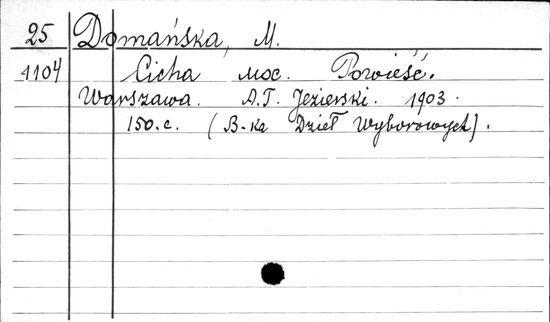 25 Domańska, M.
1104 Cicha moc. Powieść.
Warszawa. A.T. Jezierski. 1903.
150.c. (B-ka Dzieł Wyborowych).